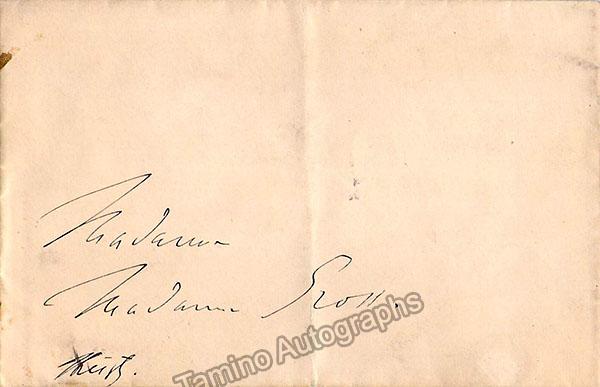 Madame
Madame Gross.
Tamino Autographs